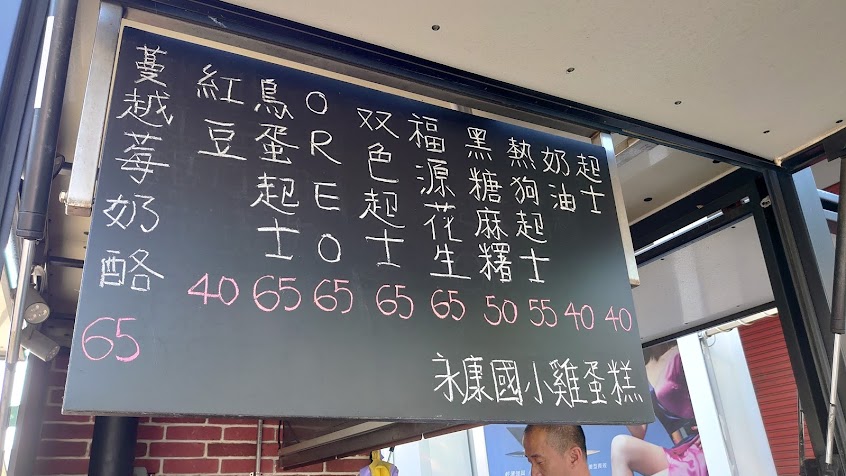 起士 40
奶油 40
熱狗起士 55
黑糖麻糬 50
福源花生 65
双色起士 65
OREO 65
鳥蛋起士 65
紅豆 40
蔓越莓奶酪 65
永康國小雞蛋糕